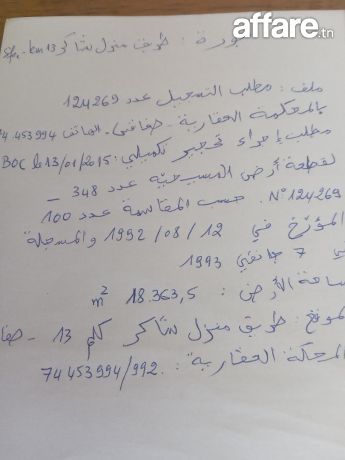 affare.tn
بورة : طريق منزل شاكر km 13 - Sfax
ملف : مطلب التسجيل عدد 124269
بالمحكمة العقارية - صفاقس - الهاتف 74.453994
مطلب إجراء تحجير تكميلي : BOC le 13/01/2015
لقطعة أرض المسيحية عدد 348 -
N° 124269 . حسب المقاسمة عدد 100
المؤرخ في 12 / 08 / 1992 والمسجلة
7 جانفي 1993
مساحة الأرض : 18.363,5 m²
الموقع : طريق منزل شاكر كلم 13 - صفا
المحكمة العقارية : 74 453994/992.